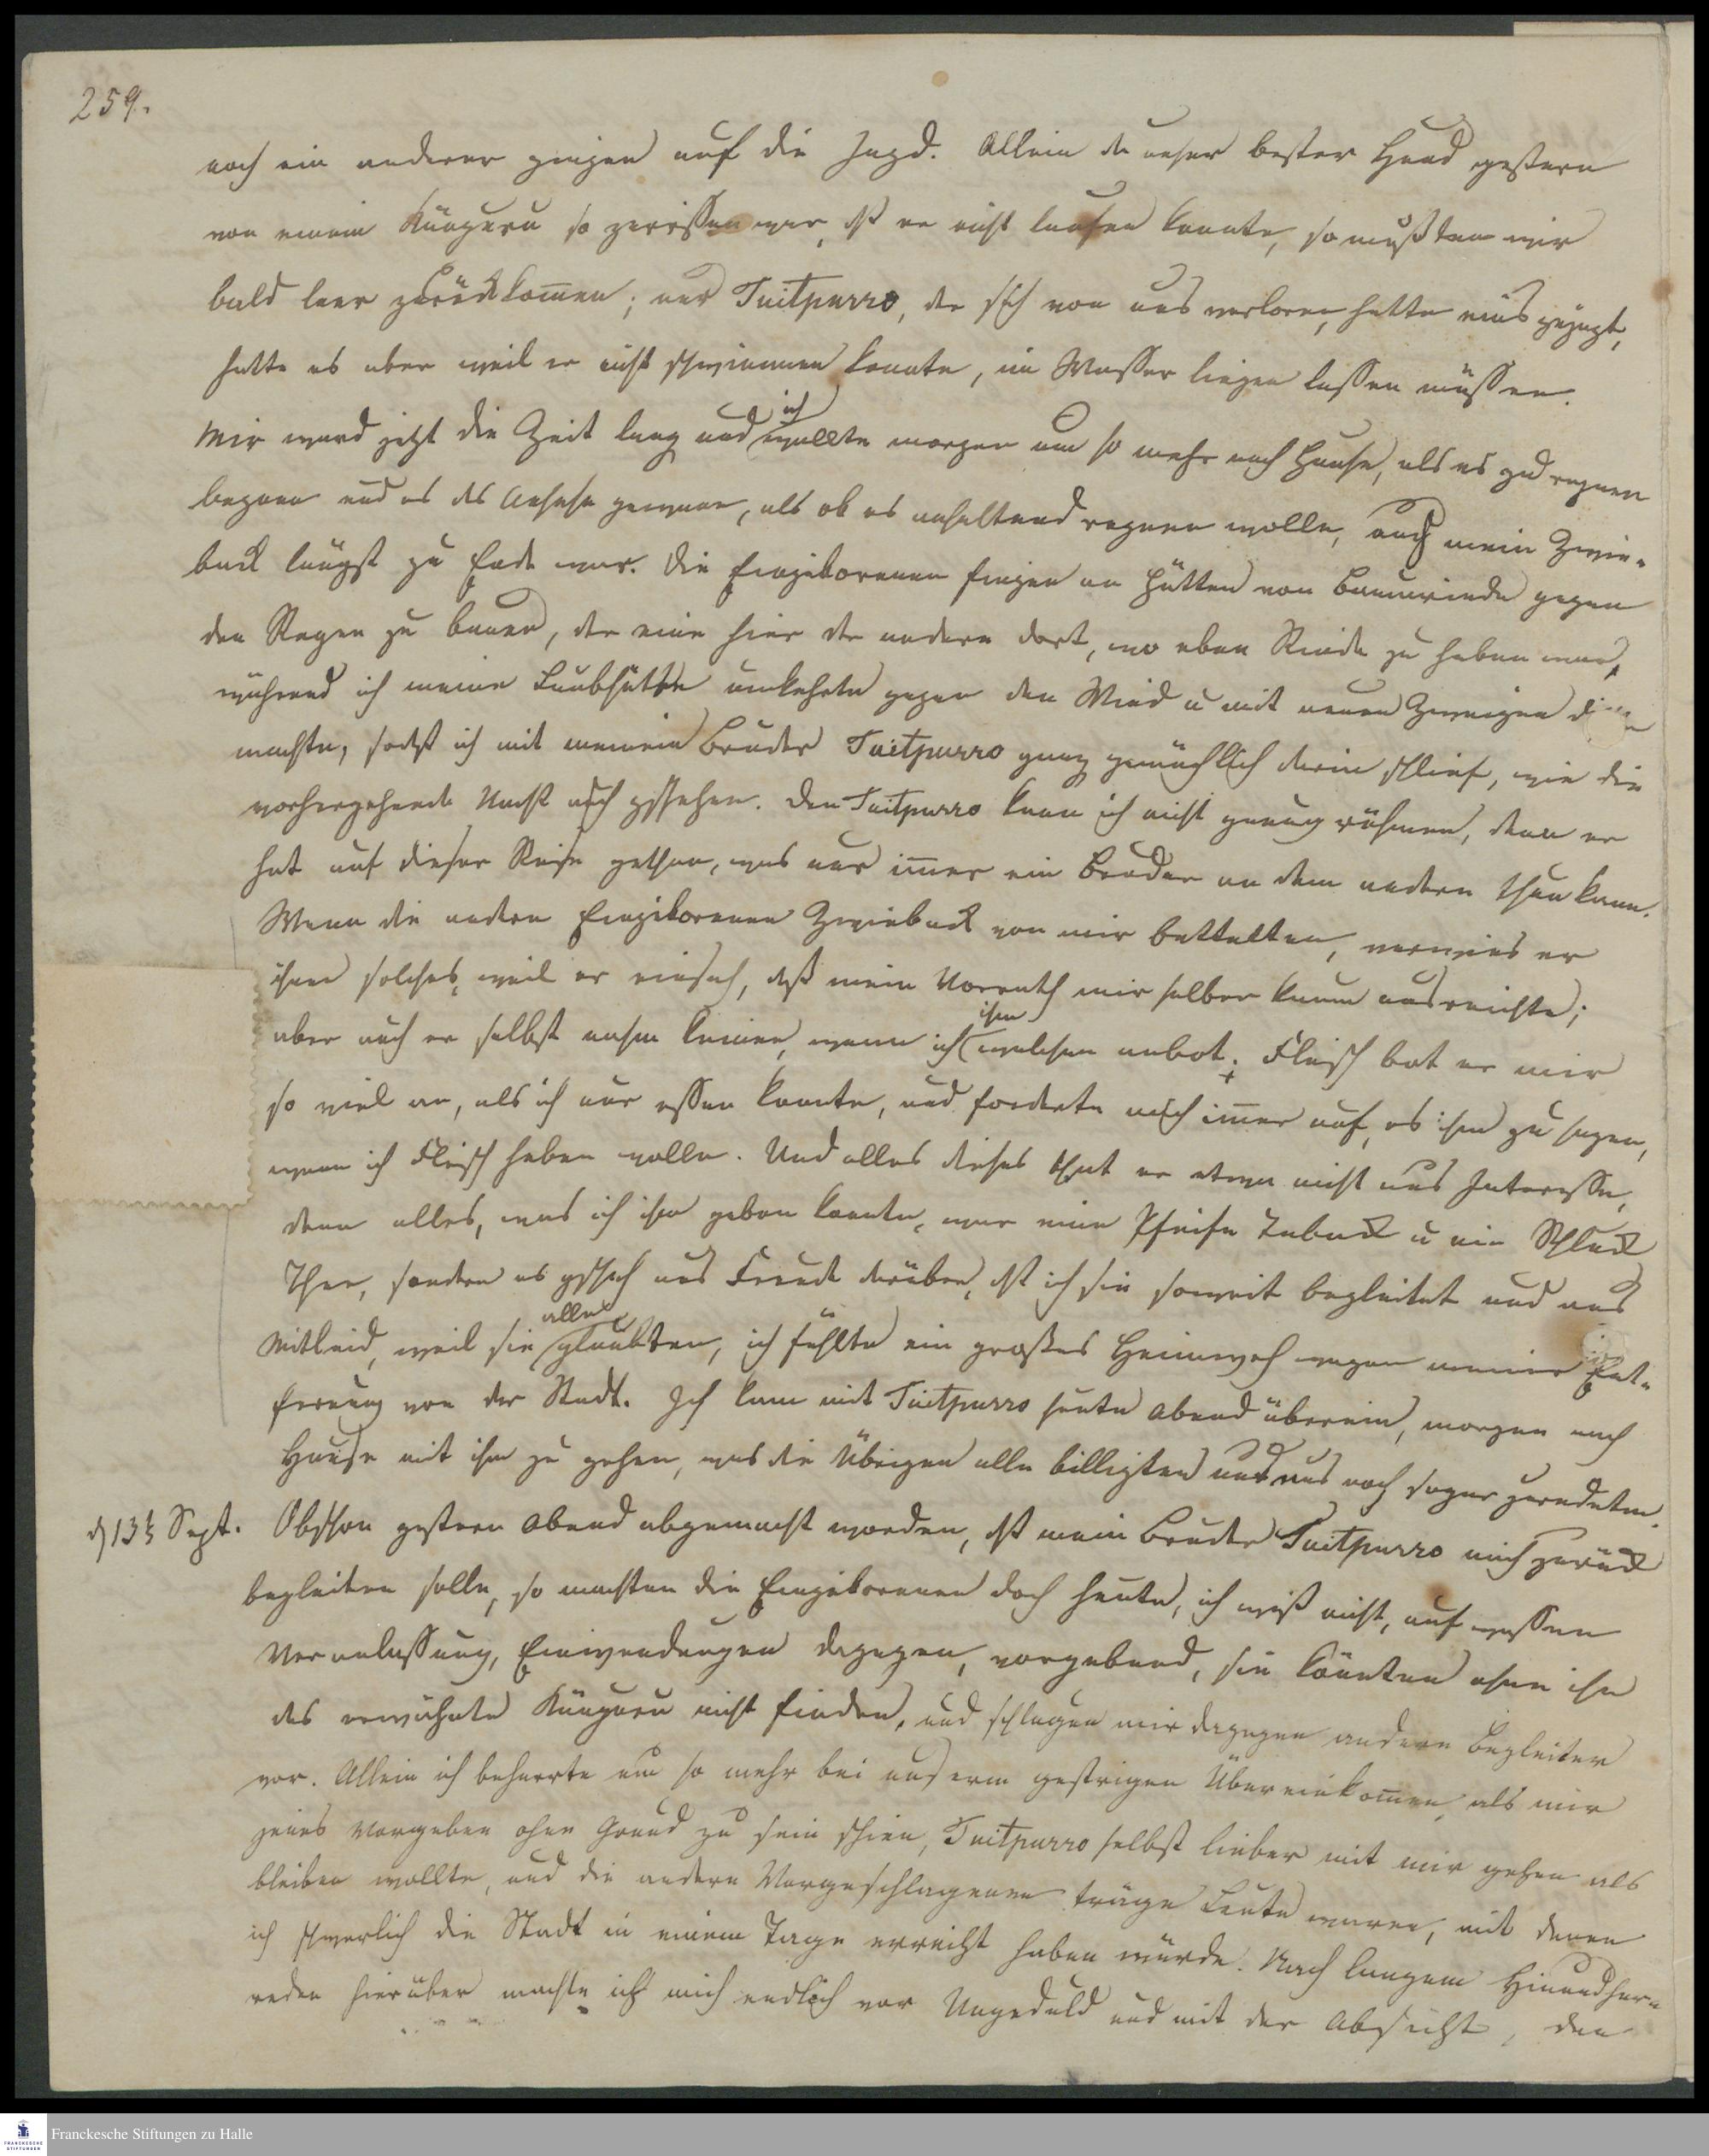 259.
noch ein anderer gingen auf die Jagd. Allein da unser bester Hund gestern
von einem Känguru so zerrissen war, dß er nicht laufen konnte, so mußten wir
bald leer zurückkom̄en; nur Tuitpurro, der sich von uns verloren, hatte eins gejagt,
hatte es aber weil er nicht schwimmen konnte, im Wasser liegen lassen müssen.
Mir ward jetzt die Zeit lang und ich wollte morgen um so mehr nach Hause, als es zu regnen
begann und es das Ansehn gewann, als ob es anhaltend regnen wolle, auch mein Zwie-
back längst zu Ende war. Die Eingeborenen fingen an Hütten von Baumrinde gegen
den Regen zu bauen, der eine hier der andere dort, wo eben Rinde zu haben war,
während ich meine Laubhütte umkehrte gegen den Wind u mit neuen Zweigen
machte, sodß ich mit meinem Bruder Tuitpurro ganz gemächlich darin schlief, wie die
vorhergehende Nacht auch geschehen. Den Tuitpurro kann ich nicht genug rühmen, denn er
hat auf dieser Reise gethan, was nur im̄er ein Bruder an dem andern thun kann.
Wenn die andern Eingeborenen Zwieback von mir bettelten, verwies er
ihnen solches, weil er einsah, daß mein Vorrath mir selber kaum ausreichte;
aber auch er selbst nahm keinen, wenn ich ihm welchen anbot. Fleisch bot er mir
so viel an, als ich nur essen konnte, und forderte mich im̄er auf, es ihm zu sagen,
wenn ich Fleisch haben wolle. Und alles dieses that er etwa nicht aus Interesse,
denn alles, was ich ihm geben konnte, war eine Pfeife Taback u ein Schluck
Thee, sondern es geschah aus Freude darüber, dß ich sie soweit begleitet und aus
Mitleid, weil sie alle glaubten, ich fühlte ein großes Heimweh wegen meiner Ent-
fernung von der Stadt. Ich kam mit Tuitpurro heute Abend überein, morgen nach
Hause mit ihm zu gehen, was die Übrigen alle billigten und uns noch sogar zuredeten.
d 13t Sept. Obschon gestern Abend abgemacht worden, dß mein Bruder Tuitpurro mich zurück
begleiten solle, so machten die Eingeborenen doch heute, ich weiß nicht, auf wessen
Veranlassung, Einwendungen dagegen, vorgebend, sie könnten ohne ihn
das erwähnte Känguru nicht finden, und schlugen mir dagegen andere Begleiter
vor. Allein ich beharrte um so mehr bei unserm gestrigen Übereinkom̄en, als mir
jenes Vorgeben ohne Grund zu sein schien, Tuitpurro selbst lieber mit mir gehen als
bleiben wollte, und die andern Vorgeschlagenen träge Leute waren, mit denen
ich schwerlich die Stadt in einem Tage erreicht haben würde. Nach langem Hinundher-
reden hierüber machte ich mich endlich vor Ungeduld und mit der Absicht, den
Franckesche Stiftungen zu Halle
FRANCKESCHE
STIFTUNGEN